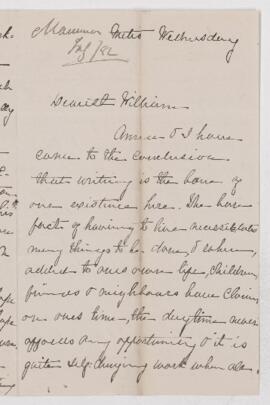 Metis Wednesday
Dearest William
Annie & I have
come to the conclusion
that writing is the bane of
our existence here. The bare
fact of having to live necessitates
many things to be done & when,
added to ones own life, children,
friends & neighbours have claims
on ones time, the daytime never
affords any opportunity & it is
quite self-denying work when